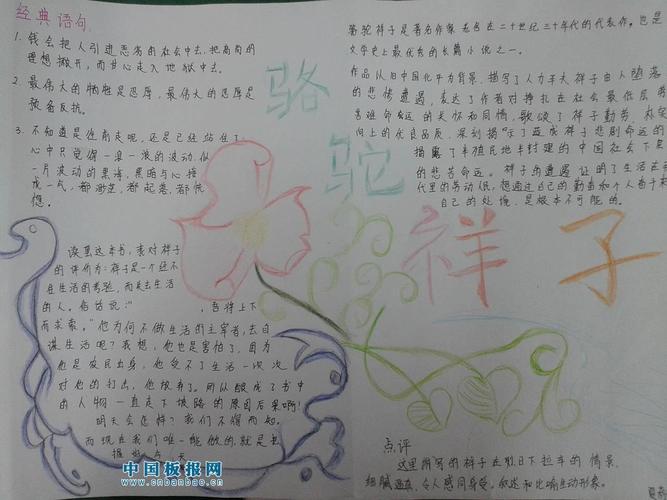 经典语句:
1. 钱会把人引进恶劣的社会中去,把高尚的
理想撇开,而甘心走入地狱中去。
2. 最伟大的牺牲是忍辱,最伟大的忍辱是
预备反抗。
3. 不知道是往前走呢,还是已经站住了,
心中只觉得一浪一浪的波动,似
一片波动的黑海,黑暗与心接
成一气,都渺茫,都起落,都恍
惚。
骆驼祥子
骆驼祥子是著名作家老舍在二十世纪三十年代的代表作。也是
文学史上最优秀的长篇小说之一。
作品以旧中国北平为背景,描写了人力车夫祥子由人堕落
的悲惨遭遇,表达了作者对挣扎在社会最底层
命运的关怀和同情,歌颂了祥子勤劳、朴实
向上的优良品质,深刻揭示了造成祥子悲剧命运的
揭露了半殖民地半封建的中国社会下层
的悲苦命运。祥子的遭遇证明了生活在
代里的劳动人民,想通过自己的勤奋和个人奋斗来
自己的处境,是根本不可能的。
读完这本书,我对祥子
的评价为:祥子是一个经不
住生活的考验,而失去生活
的人。俗话说:" ,吾将上下
而求索。"他为何不做生活的主宰者,去自
谋生活呢?我想,他也是害怕了,因为
他是农民出身,他受不了生活一次次
对他的打击,他放弃了。所以酿成了书中
的人物一直走下坡路的原因后果啊!
明天会怎样?我们不得而知。
而现在我们唯一能做的就是去
握好 天
点评
这里所写的祥子在烈日下拉车的情景
细腻逼真,令人感同身受。叙述和比喻生动形象。
中国板报网
www.cnbanbao.cn